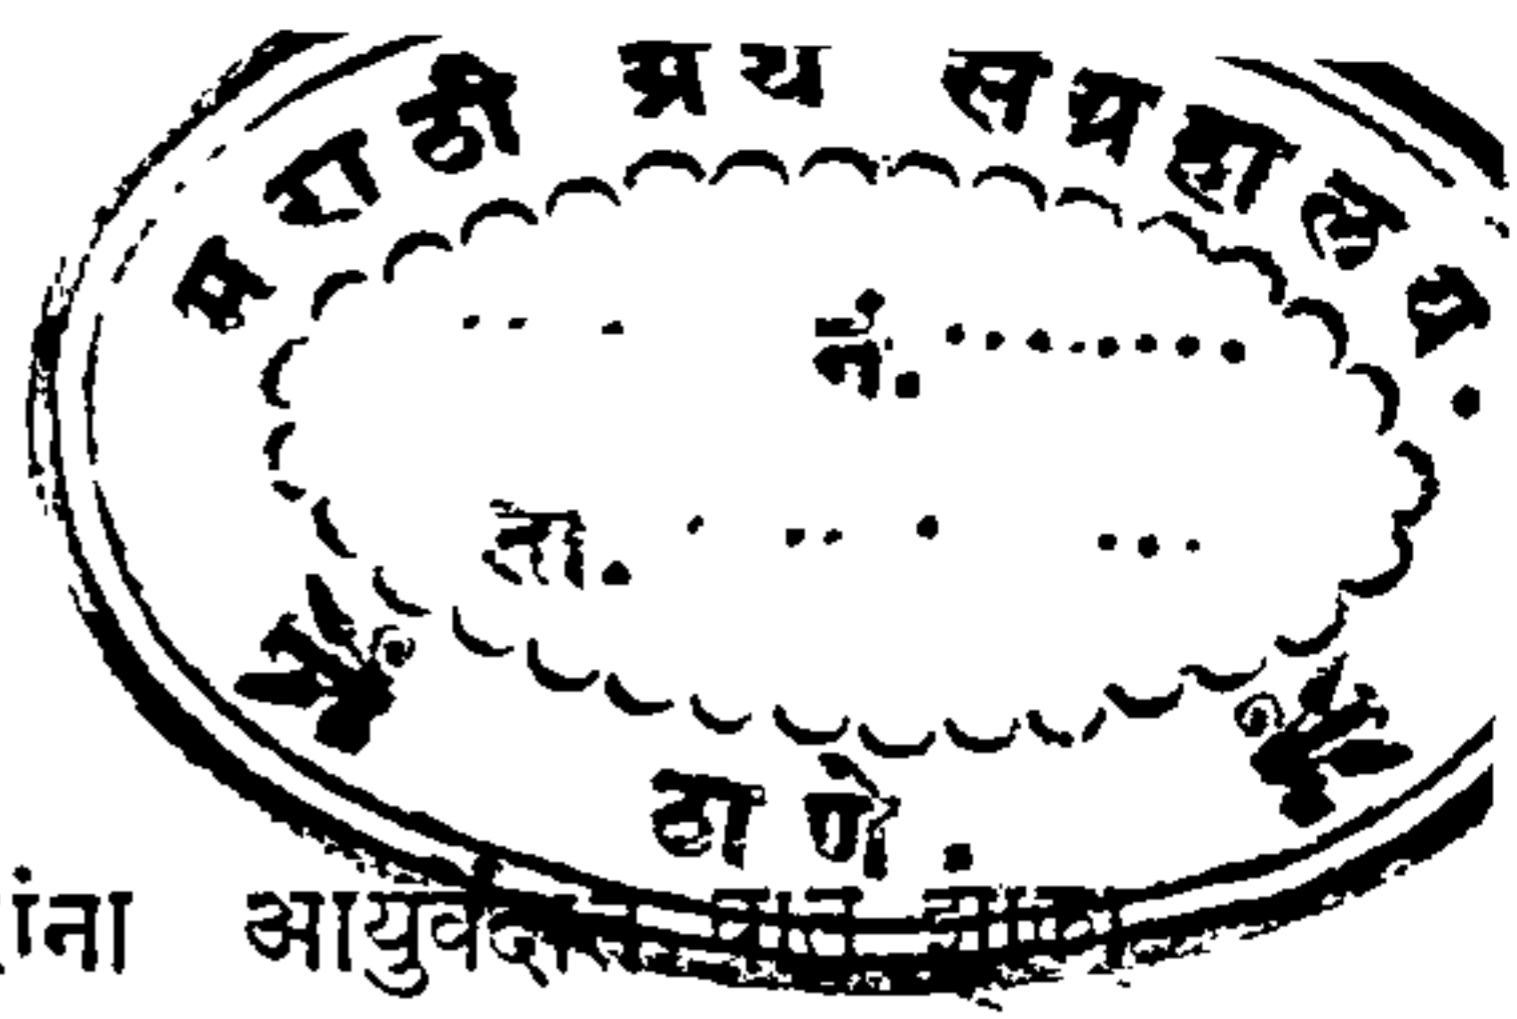 मराठी ग्रंथ संग्रहालय.
नं. ........
ता. . .. . ...
ठाणे.
ांना आयुर्वेदात